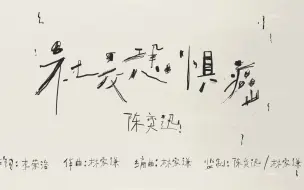 社交恐惧癌
陈奕迅
词: 作曲:林家谦 编曲:林家谦 监制:陈奕迅/林家谦